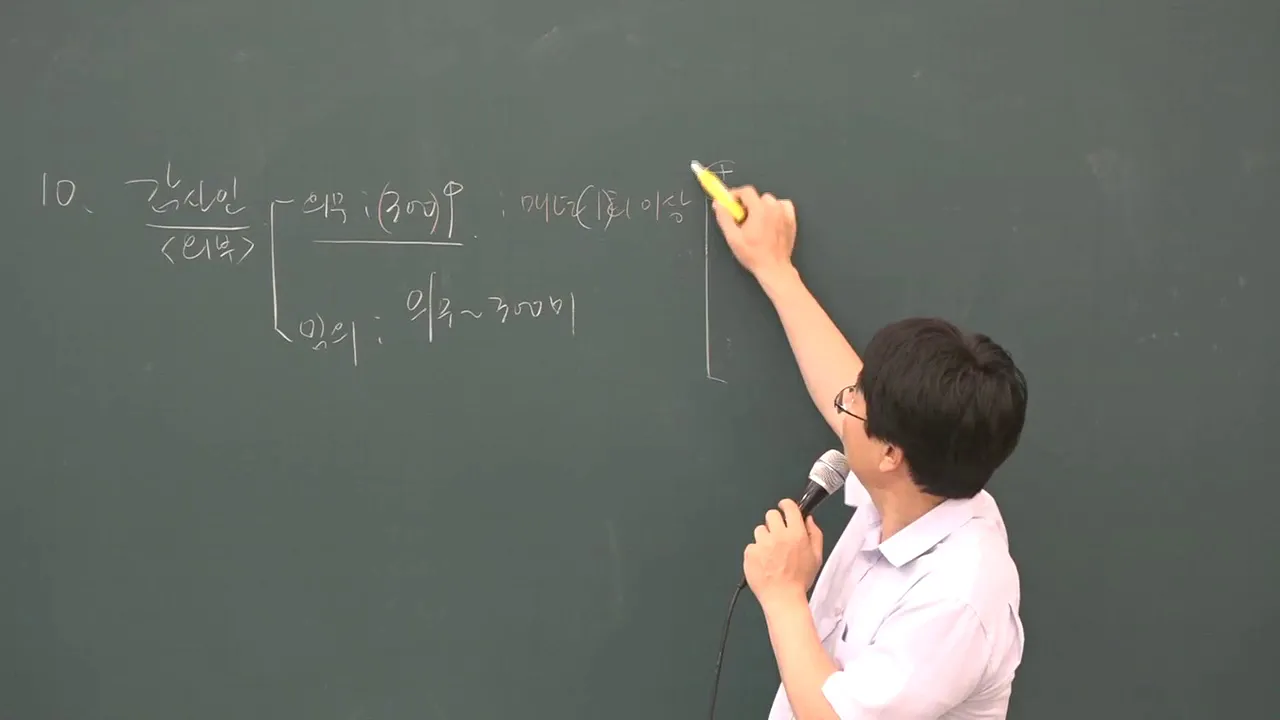 10. 감사인 의무 : (300)↑ : 매년 (1)회 이상
<외부>
임의 : 의무~300미